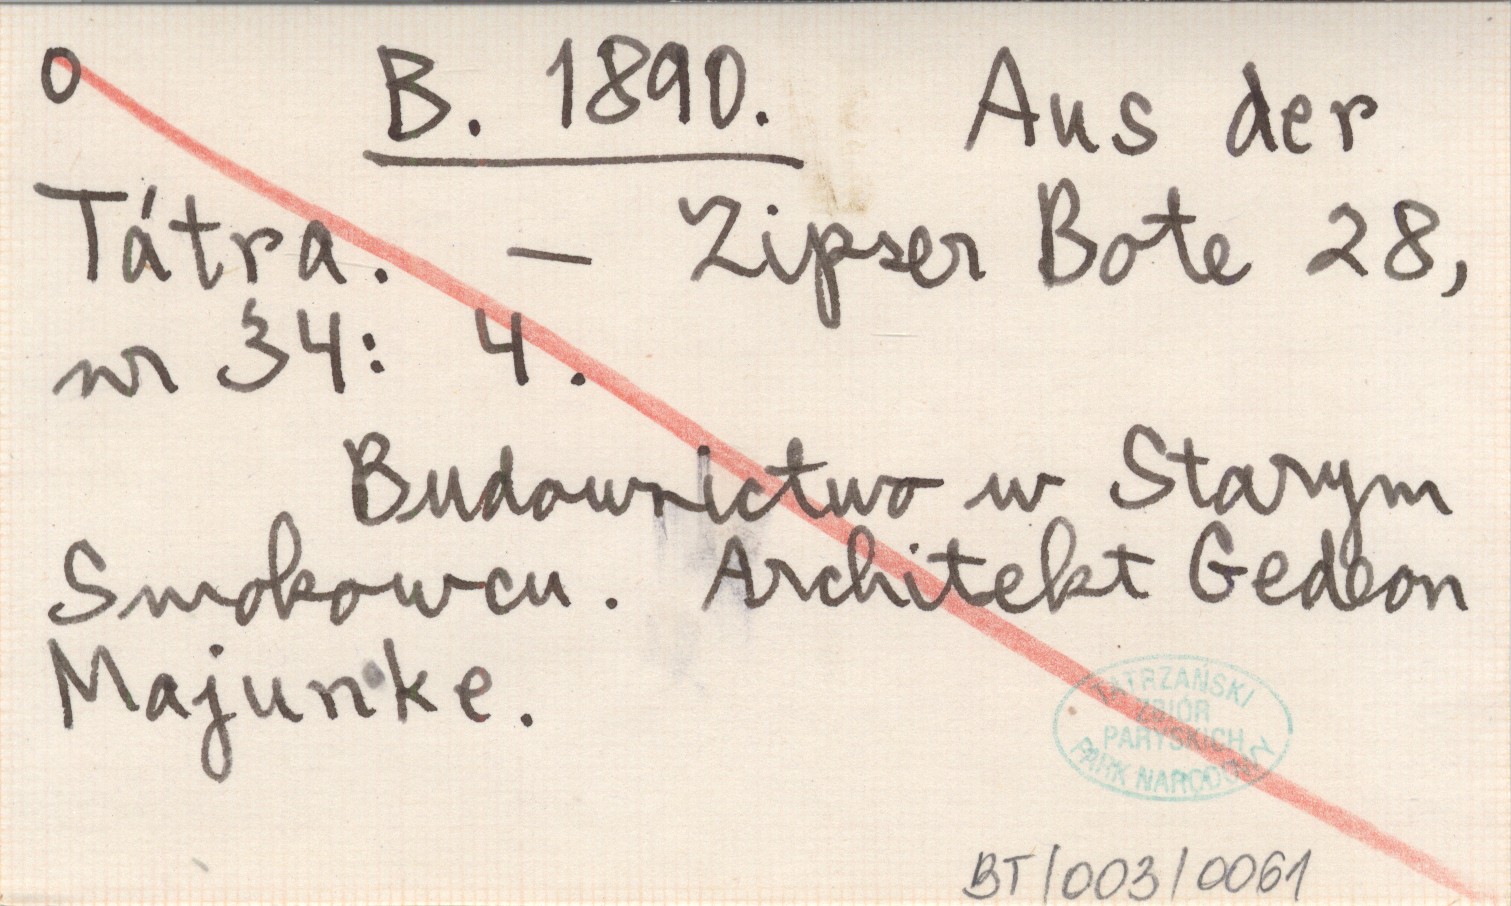 O B. 1890. Aus der
Tátra. — Zipser Bote 28,
nr 34: 4.
Budownictwo w Starym
Smokowcu. Architekt Gedeon
Majunke.
TATRZAŃSKI
ZBIÓR
PARYSKICH
PARK NARODOWY
BT/003/0061